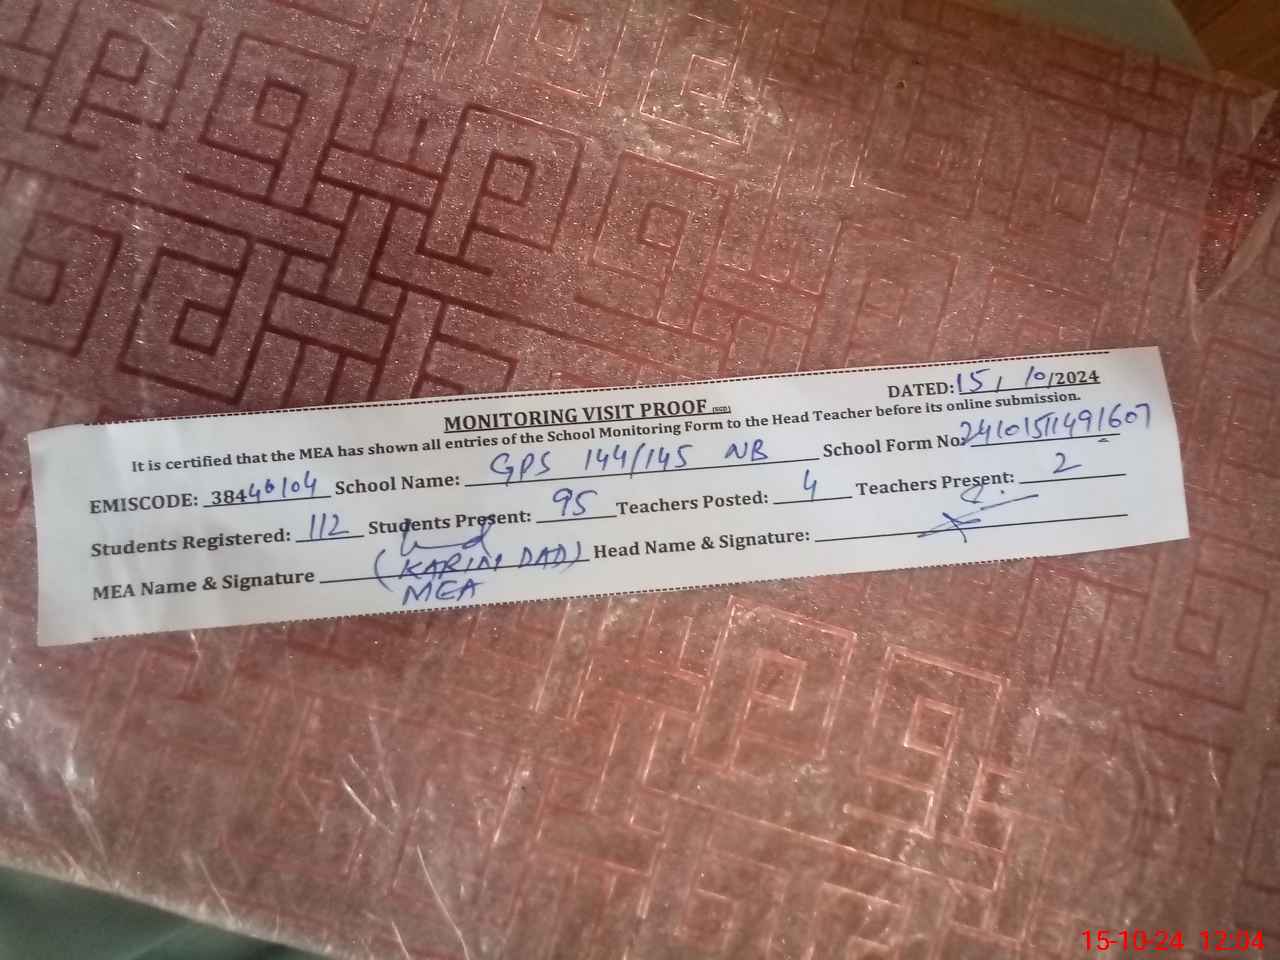 DATED: 15 / 10/2024
MONITORING VISIT PROOF (SGD)
It is certified that the MEA has shown all entries of the School Monitoring Form to the Head Teacher before its online submission.
EMISCODE: 38440104 School Name: GPS 144/145 NB School Form No. 24101511491607
Students Registered: 112 Students Present: 95 Teachers Posted: 4 Teachers Present: 2
MEA Name & Signature (KARIM DAD) Head Name & Signature:
MEA
15-10-24 12:04